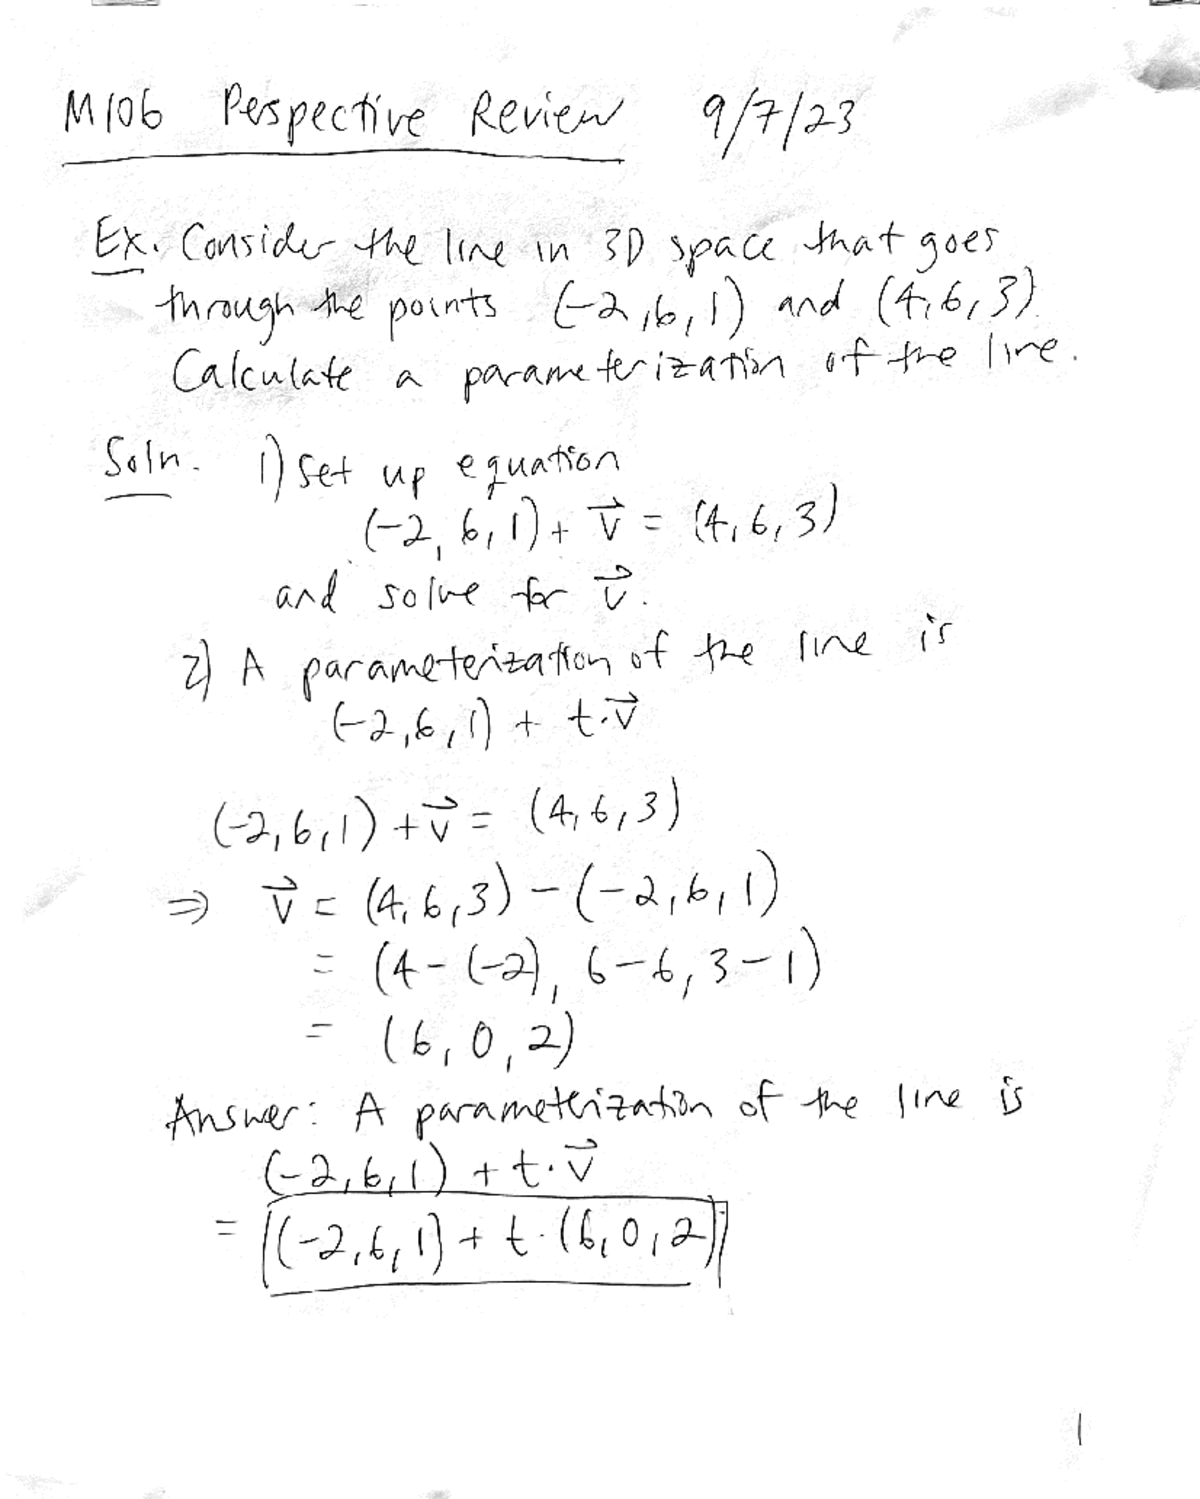 M106 Perspective Review 9/7/23
Ex. Consider the line in 3D space that goes
through the points (-2,6,1) and (4,6,3).
Calculate a parameterization of the line.
Soln. 1) Set up equation
(-2,6,1) + v⃗ = (4,6,3)
and solve for v⃗.
2) A parameterization of the line is
(-2,6,1) + t·v⃗
(-2,6,1) + v⃗ = (4,6,3)
⇒ v⃗ = (4,6,3) - (-2,6,1)
= (4-(-2), 6-6, 3-1)
= (6,0,2)
Answer: A parameterization of the line is
(-2,6,1) + t·v⃗
= (-2,6,1) + t·(6,0,2)
1